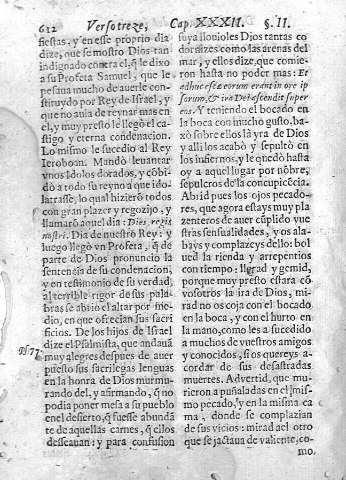 612 Versotreze, Cap. XXXII. §. II.
fiestas, y en esse proprio dia
dize, que se mostro Dios tan
indignado contra el, q̃ le dixo
a su Profeta Samuel, que le
pesaua mucho de auerle con-
stituydo por Rey de Israel, y
que no auia de reynar mas en
el, y muy presto le llegó el ca-
stigo y eterna condenacion.
Lo mismo le sucedio al Rey
Ieroboan. Mandò leuantar
vnos idolos dorados, y cõbi-
dò a todo su reyno a que ido-
latrasse, lo qual hizierõ todos
con gran plazer y regozijo, y
llamarõ aquel dia: Dies regis
nostri. Dia de nuestro Rey: y
luego llegò vn Profeta, q̃ de
parte de Dios pronunciò la
sentencia de su condenacion,
y en testimonio de su verdad,
al terrible rigor de sus pala-
bras se abrio el altar por me-
dio, en que ofrecian sus sacri-
ficios. De los hijos de Israel
Ps. 77. dize el Psalmista, que andauã
muy alegres despues de auer
puesto sus sacrilegas lenguas
en la honra de Dios murmu-
rando del, y afirmando, q̃ no
podia poner mesa a su pueblo
en el desierto, q̃ fuesse abunda
te de aquellas carnes, q̃ ellos
desseauan: y para confusion
suya llouioles Dios tantas co
dornizes como las arenas del
mar, y ellos dize, que comie-
ron hasta no poder mas: Et
adhuc escæ eorum erant in ore ip
sorum, & ira Dei ascendit super
eos. Y teniendo el bocado en
la boca con mucho gusto, ba-
xò sobre ellos la yra de Dios
y alli los acabò y sepultò en
los infiernos, y le quedò hasta
oy a aquel lugar por nõbre,
sepulcros de la concupicẽcia.
Abrid pues los ojos pecado-
res, que agora estays muy pla
zenteros de auer cũplido vue
stras sensualidades, y os ala-
bays y complazeys dello: bol
ued la rienda y arrepentios
con tiempo: llorad y gemid,
porque muy presto estara cõ
vosotros la ira de Dios, mi-
rad no os coja con el bocado
en la boca, y con el hurto en
la mano, como les a sucedido
a muchos de vuestros amigos
y conocidos, si os quereys a-
cordar de sus desastradas
muertes. Advertid, que mu-
rieron a puñaladas en el mis-
mo pecado, y en la misma ca
ma, donde se complazian
de sus vicios: mirad al otro
que se jactaua de valiente, co-
mo.